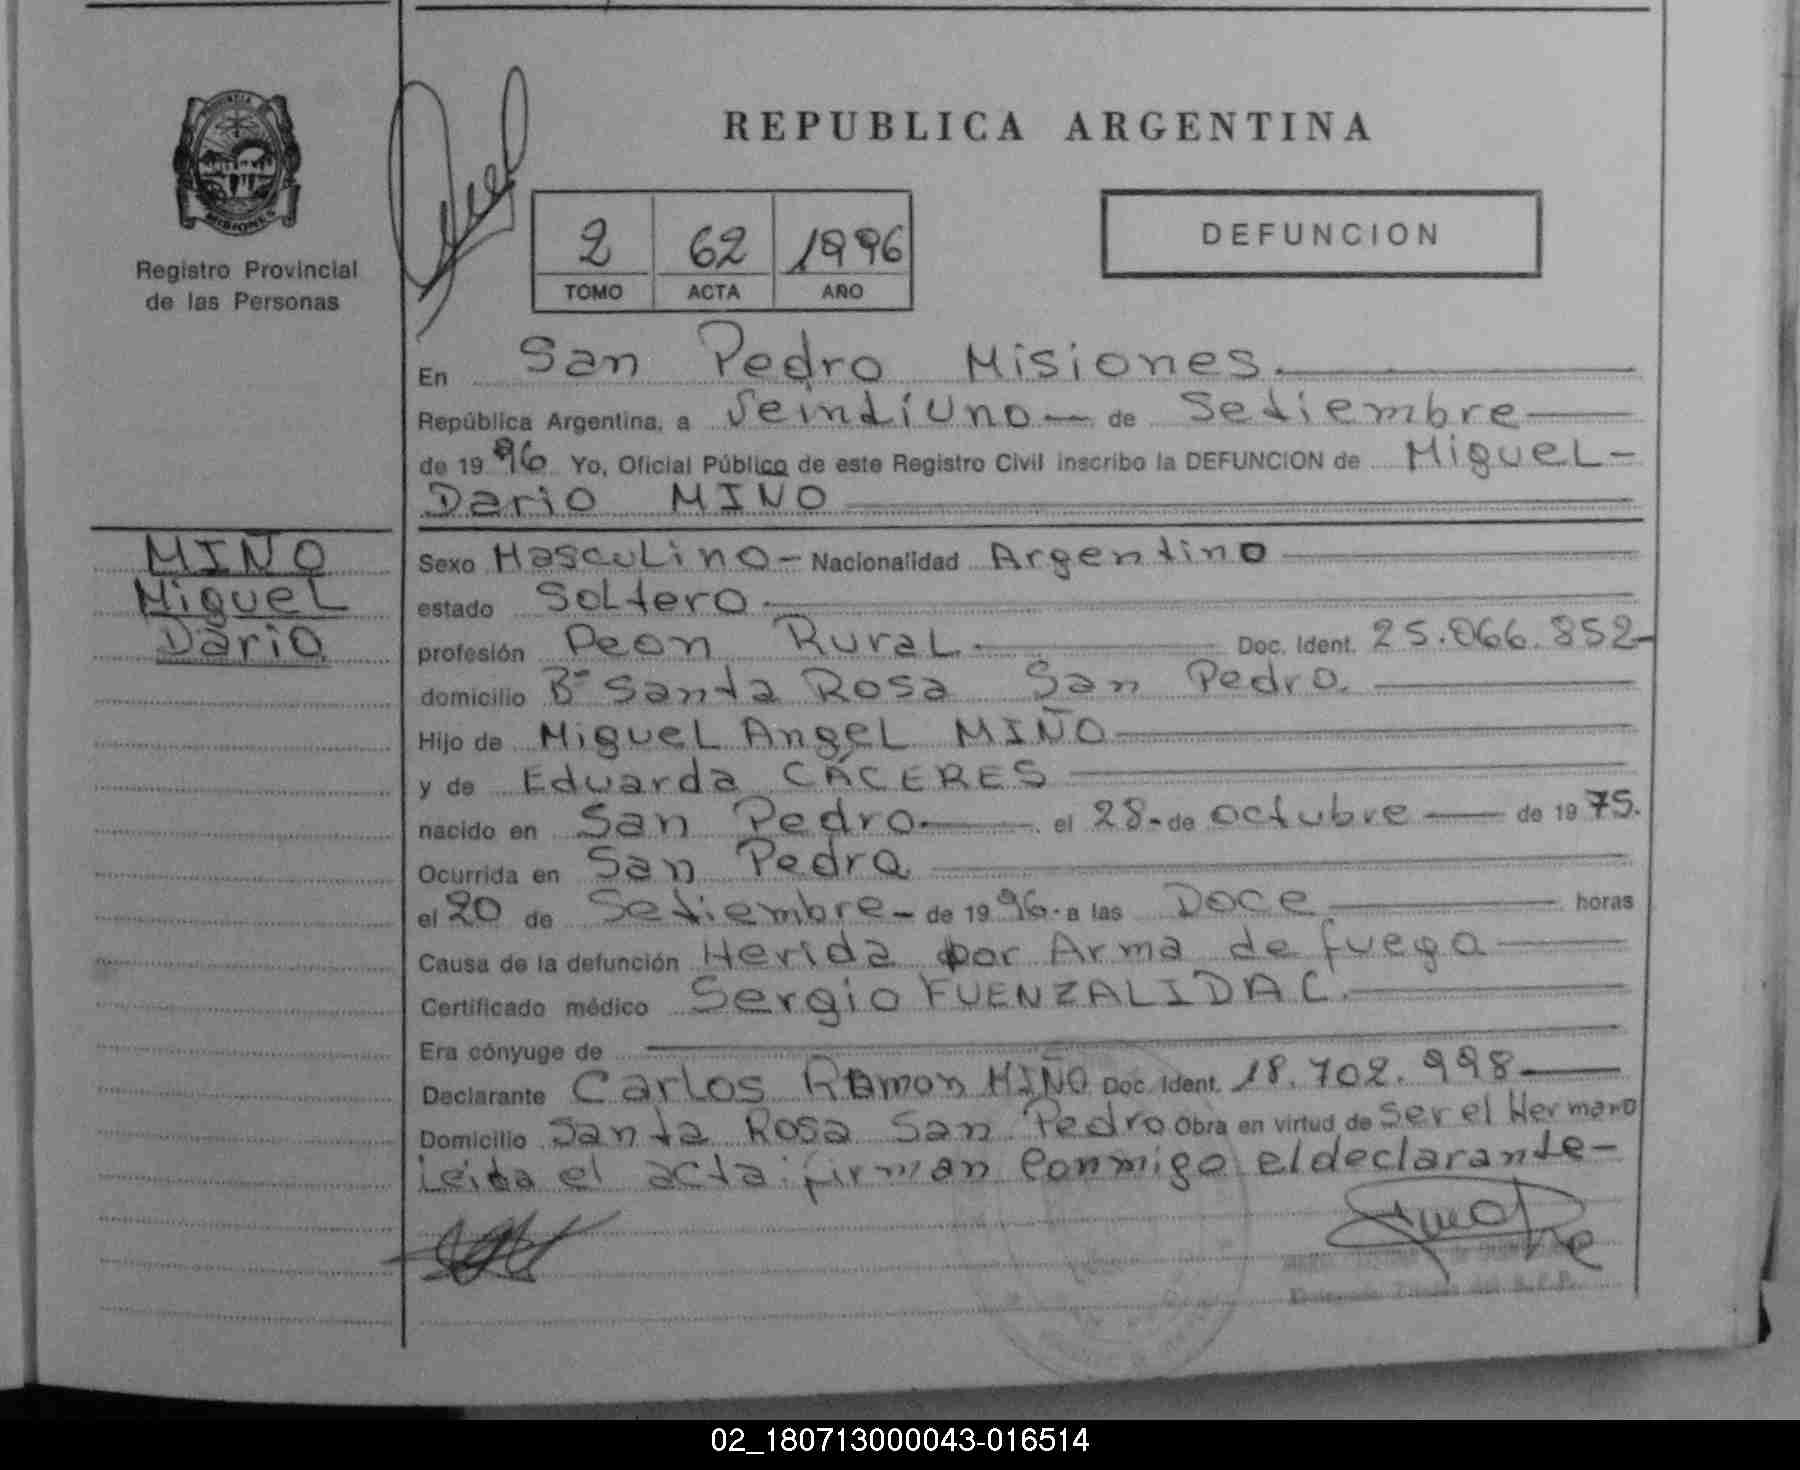 REPUBLICA ARGENTINA
PROVINCIA DE
MISIONES
Registro Provincial
de las Personas
2 62 1996
TOMO ACTA AÑO
DEFUNCION
En San Pedro Misiones.
República Argentina, a Veintiuno - de Setiembre
de 1996 Yo, Oficial Público de este Registro Civil inscribo la DEFUNCION de Miguel-
Dario MINO
MIÑO
Miguel
Dario
Sexo Masculino - Nacionalidad Argentino
estado Soltero.
profesión Peon Rural. Doc. Ident. 25.066.852-
domicilio Bº Santa Rosa San Pedro.
Hijo de Miguel Angel MIÑO
y de Eduarda CÁCERES
nacido en San Pedro. el 28-de octubre de 1975.
Ocurrida en San Pedro
el 20 de Setiembre - de 1996. a las Doce horas
Causa de la defunción Herida por Arma de fuego
Certificado médico Sergio FUENZALIDA C.
Era cónyuge de
Declarante Carlos Ramon MIÑO Doc. Ident. 18.702.998
Domicilio Santa Rosa San Pedro Obra en virtud de Ser el Hermano
Leida el acta: firman conmigo el declarante-
02_180713000043-016514